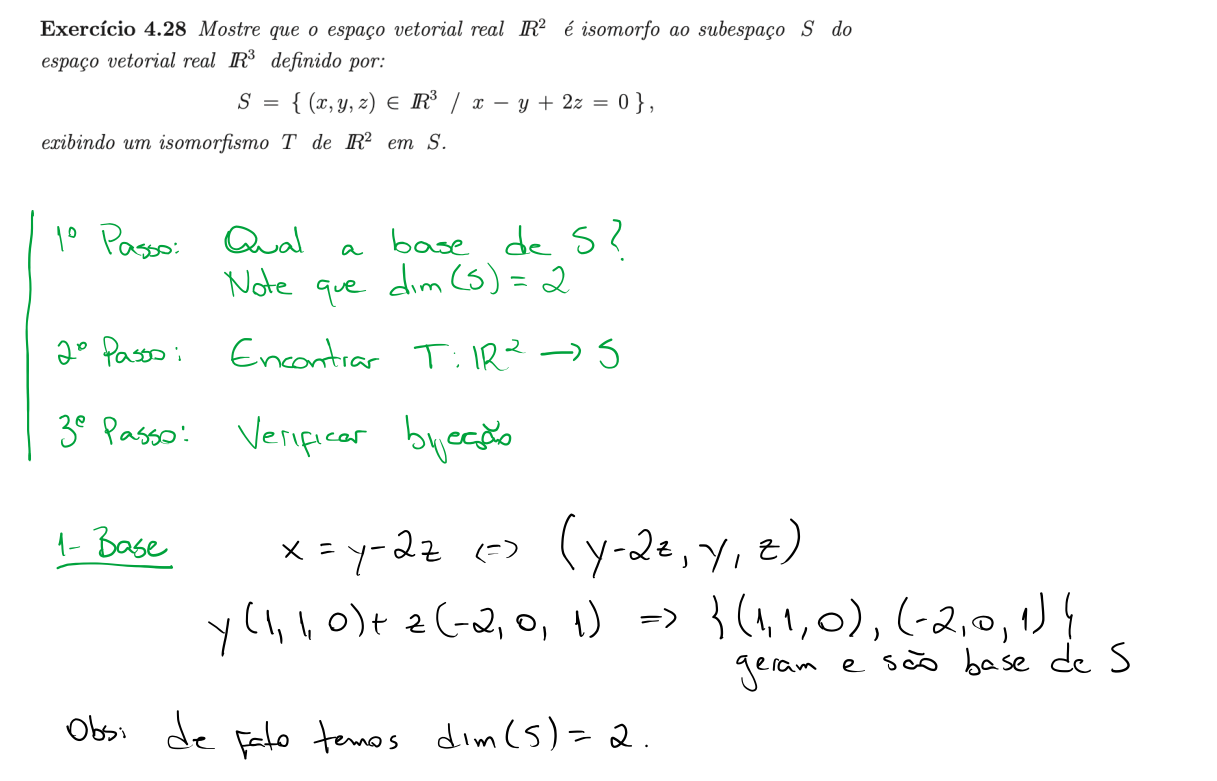 Exercício 4.28 Mostre que o espaço vetorial real ℝ² é isomorfo ao subespaço S do
espaço vetorial real ℝ³ definido por:
S = { (x, y, z) ∈ ℝ³ / x − y + 2z = 0 },
exibindo um isomorfismo T de ℝ² em S.
1º Passo: Qual a base de S?
Note que dim(S) = 2
2º Passo: Encontrar T: ℝ² → S
3º Passo: Verificar bijeção
1- Base x = y-2z <=> (y-2z, y, z)
y(1, 1, 0) + z(-2, 0, 1) => {(1,1,0), (-2,0,1)}
geram e são base de S
Obs: de fato temos dim(S) = 2.